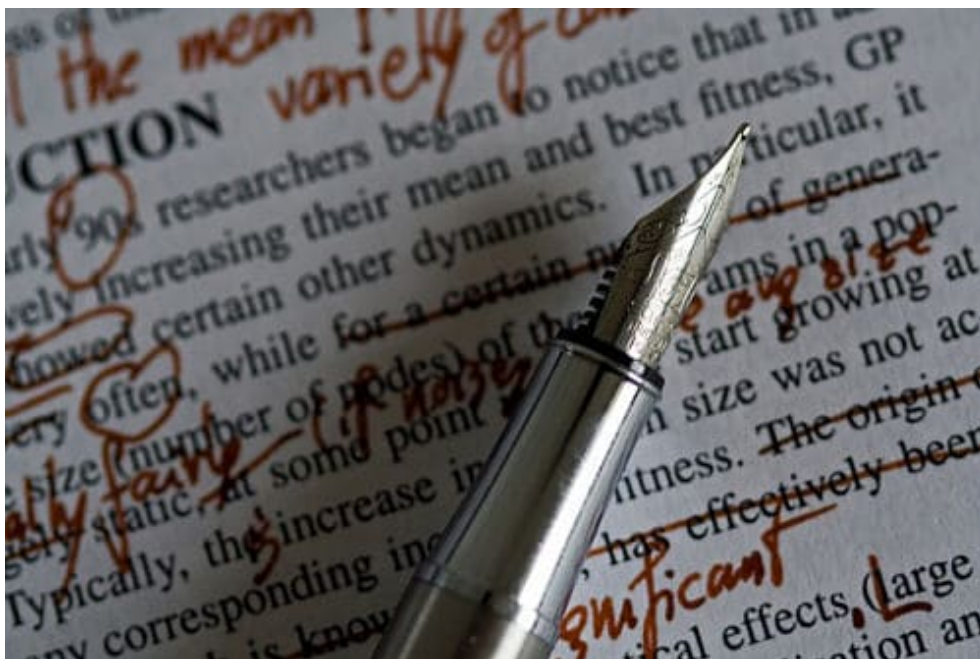 ss of the
the mean
variety of
UCTION
rly 90s researchers began to notice that in
vely increasing their mean and best fitness, GP
howed certain other dynamics. In particular, it
ery often, while for a certain of genera-
size (number of nodes) of the rams in a pop-
e avg size
ally fairly (if noisy
gely static, at some point start growing at
Typically, the increase in size was not ac
s
ny corresponding inc fitness. The origin
is know , has effectively been
gnificant
ical effects. (Large
ization an